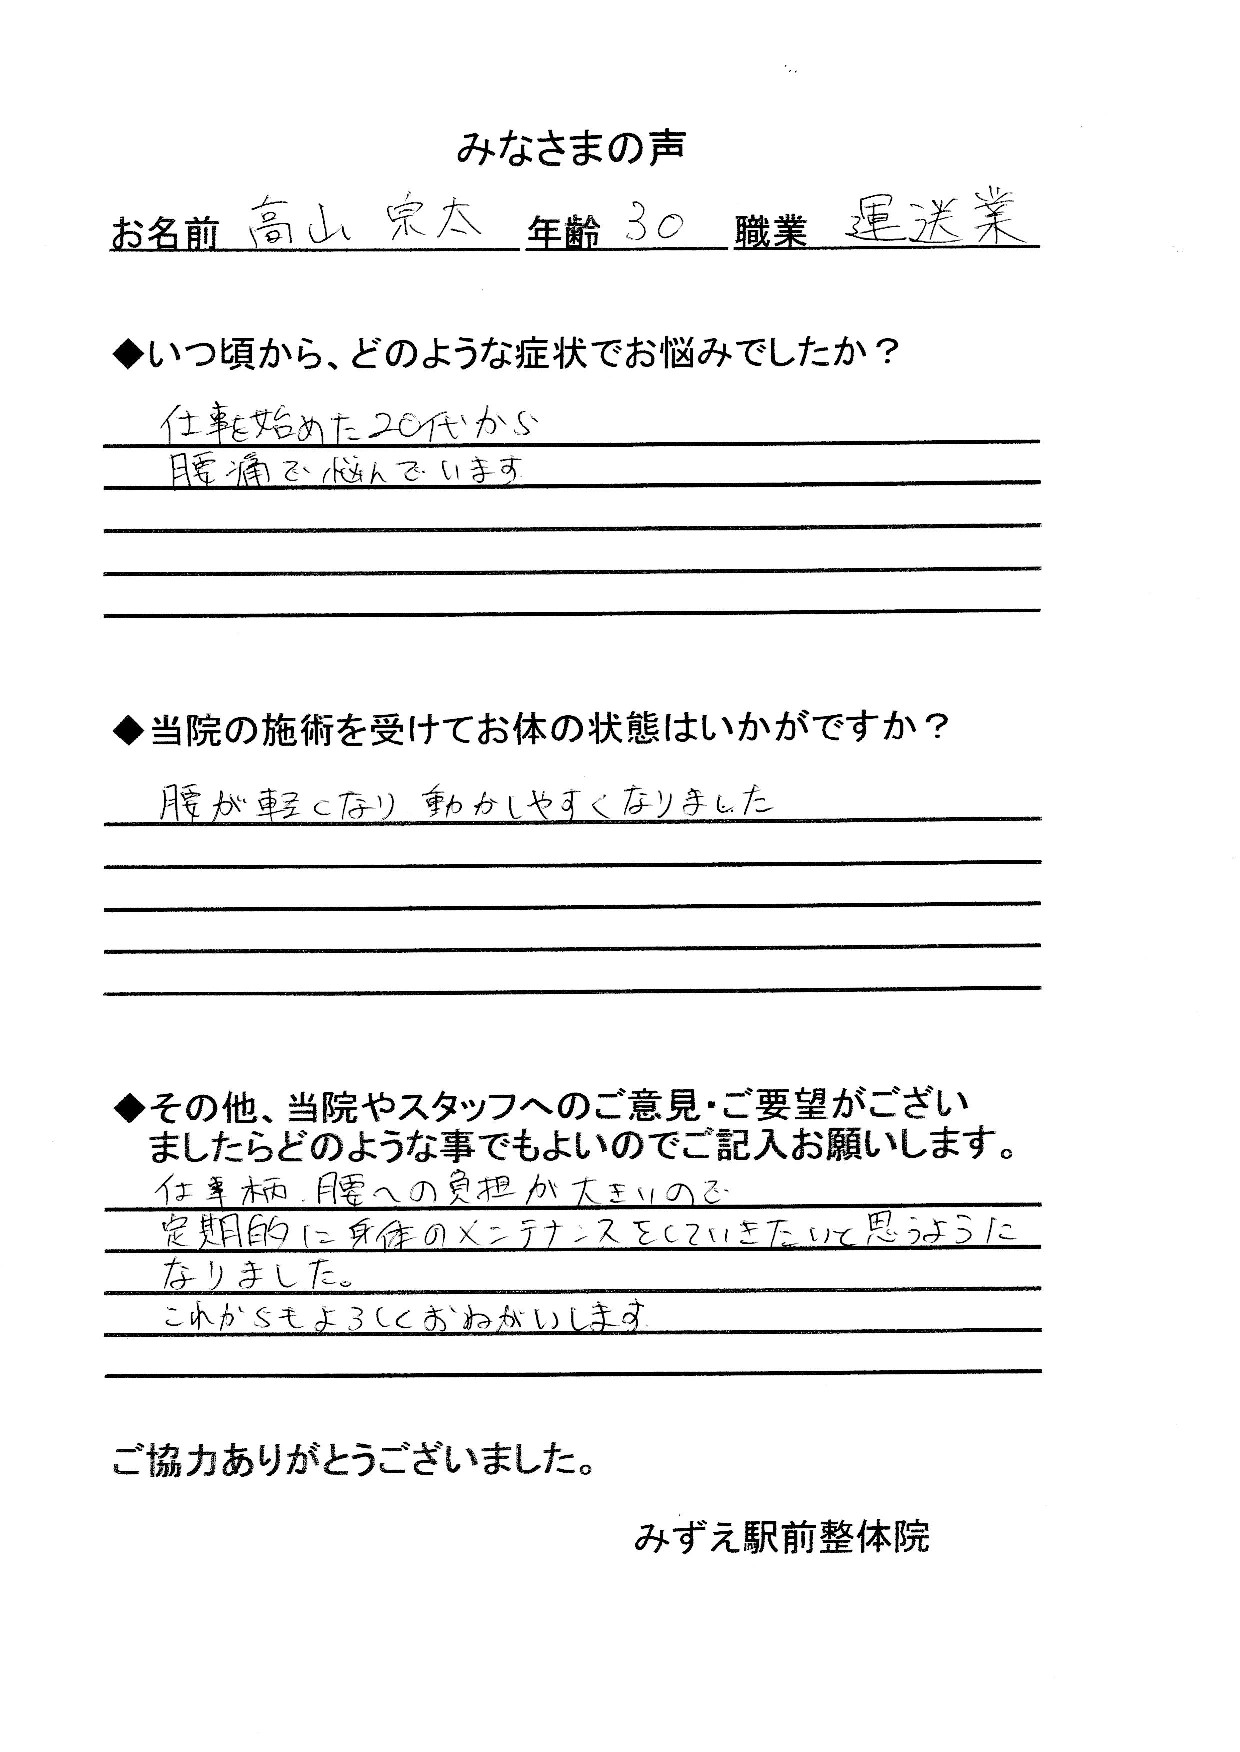 みなさまの声
お名前 高山 宗太 年齢 30 職業 運送業
◆いつ頃から、どのような症状でお悩みでしたか？
仕事を始めた20代から
腰痛で悩んでいます
◆当院の施術を受けてお体の状態はいかがですか？
腰が軽くなり 動かしやすくなりました
◆その他、当院やスタッフへのご意見・ご要望がござい
ましたらどのような事でもよいのでご記入お願いします。
仕事柄、腰への負担が大きいので
定期的に身体のメンテナンスをしていきたいと思うように
なりました。
これからもよろしくおねがいします
ご協力ありがとうございました。
みずえ駅前整体院